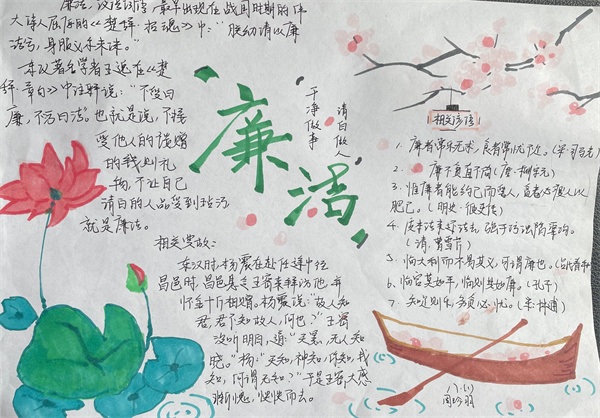 廉洁，汉语词语，最早出现在战国时期的伟
大诗人屈原的《楚辞·招魂》中："朕幼清以廉
洁兮，身服义而未沫。"
东汉著名学者王逸在《楚
辞·章句》中注释说："不受曰
廉，不污曰洁。"也就是说，不接
受他人的馈赠
的钱财礼
物，不让自己
清白的人品受到玷污
就是廉洁。
廉洁
干净做事
清白做人
相关故事：
东汉时，杨震在赴任途中经
昌邑时，昌邑县令王密来拜访他，并
怀金十斤相赠。杨震说："故人知
君，君不知故人，何也？"王密
没听明白，道："天黑，无人知
晓。"杨："天知，神知，你知，我
知，何谓无知？"于是王密大感
惭愧，怏怏而去。
相关名言
1. 廉者常乐无求，贪者常忧不足。
2. 廉不贪直不倚（唐·柳宗元）
3. 惟廉者能约己而爱人，贪者必朘人以
肥己。
4.
（清·曾
5. 临大利而不易其义，可谓廉也。（吕氏春秋
6. 临官莫如平，临财莫如廉。（孔子）
7. 知足则乐，务贪必忧。（宋·林逋）